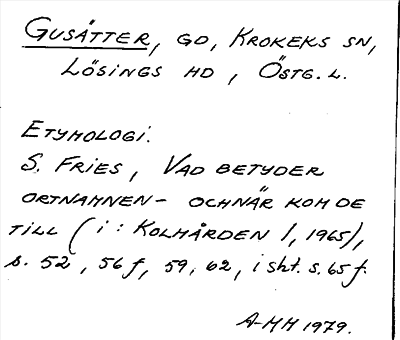 GUSÄTTER, GD, KROKEKS SN,
LÖSINGS HD, ÖSTG. L.
ETYMOLOGI.
S. FRIES, VAD BETYDER
ORTNAMNEN - OCHNÄR KOM DE
TILL (i: KOLMÅRDEN 1, 1965),
s. 52, 56 f, 59, 62, i sht. s. 65 f.
A-MH 1979.